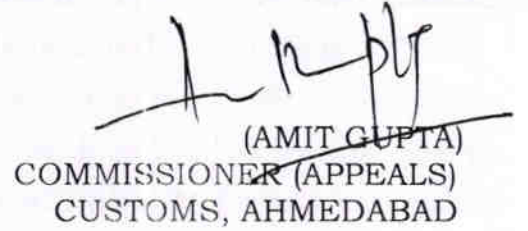 (AMIT GUPTA)
COMMISSIONER (APPEALS)
CUSTOMS, AHMEDABAD